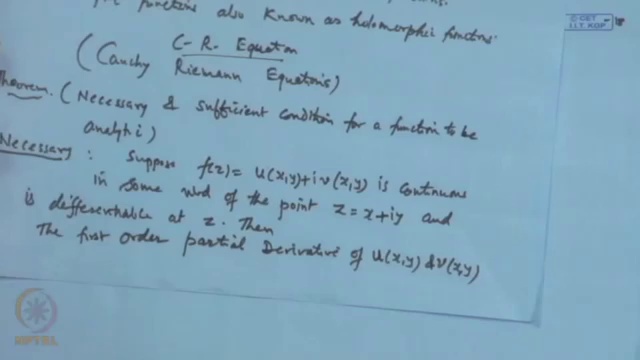 functions also known as holomorphic functions.
C-R. Equation
(Cauchy Riemann Equations)
Theorem. (Necessary & sufficient condition for a function to be
analytic)
Necessary: Suppose f(z) = u(x,y)+iv(x,y) is continuous
in some nbd of the point z=x+iy and
is differentiable at z. Then
The first order partial Derivative of u(x,y) & v(x,y)
© CET
I.I.T. KGP
NPTEL